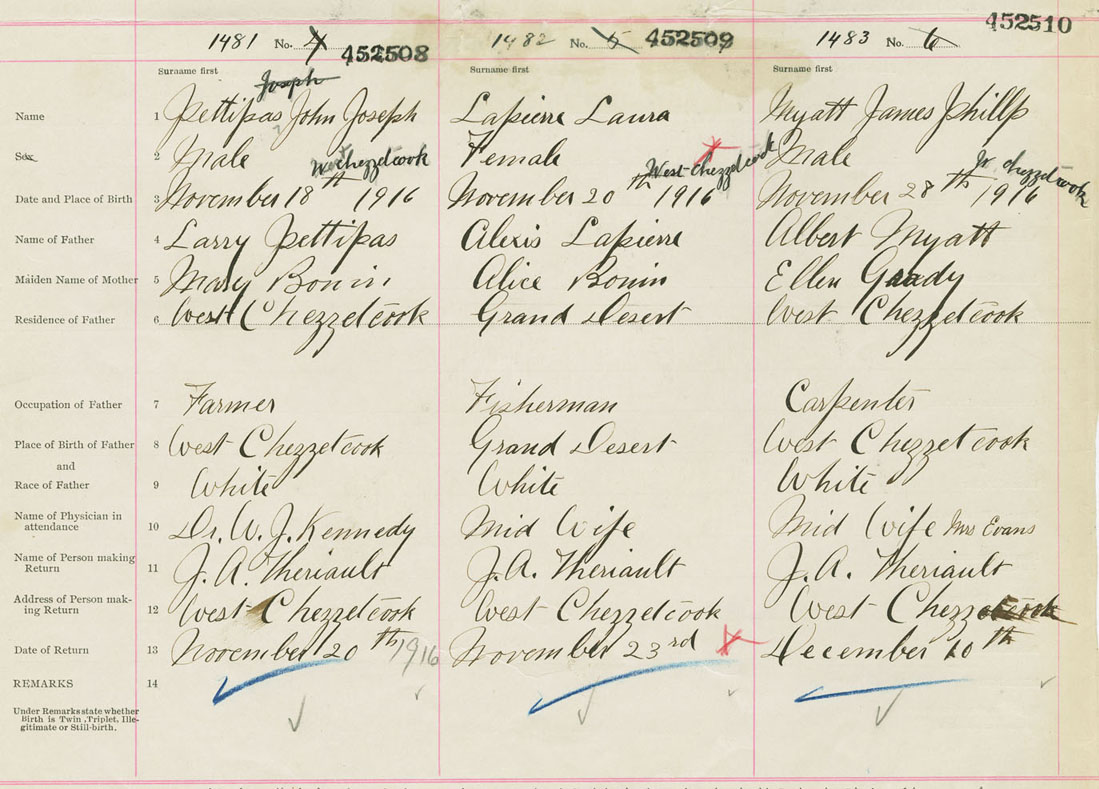 1481 No. 4 452508 1482 No. 5 452509 1483 No. 6 452510
Surname first Surname first Surname first
Joseph
Name 1 Pettipas John Joseph Lapierre Laura Myatt James Phillp
Sex 2 Male Female Male
West Chezzetcook West Chezzetcook W. Chezzetcook
Date and Place of Birth 3 November 18th 1916 November 20th 1916 November 28th 1916
Name of Father 4 Larry Pettipas Alexis Lapierre Albert Myatt
Maiden Name of Mother 5 Mary Bonin Alice Bonin Ellen Grady
Residence of Father 6 West Chezzetcook Grand Desert West Chezzetcook
Occupation of Father 7 Farmer Fisherman Carpenter
Place of Birth of Father 8 West Chezzetcook Grand Desert West Chezzetcook
and
Race of Father 9 White White White
Name of Physician in
attendance 10 Dr. W. J. Kennedy Mid Wife Mid Wife Mrs Evans
Name of Person making
Return 11 J. A. Theriault J. A. Theriault J. A. Theriault
Address of Person mak-
ing Return 12 West Chezzetcook West Chezzetcook West Chezzetcook
Date of Return 13 November 20th 1916 November 23rd December 10th
REMARKS 14
Under Remarks state whether
Birth is Twin, Triplet, Ille-
gitimate or Still-birth.